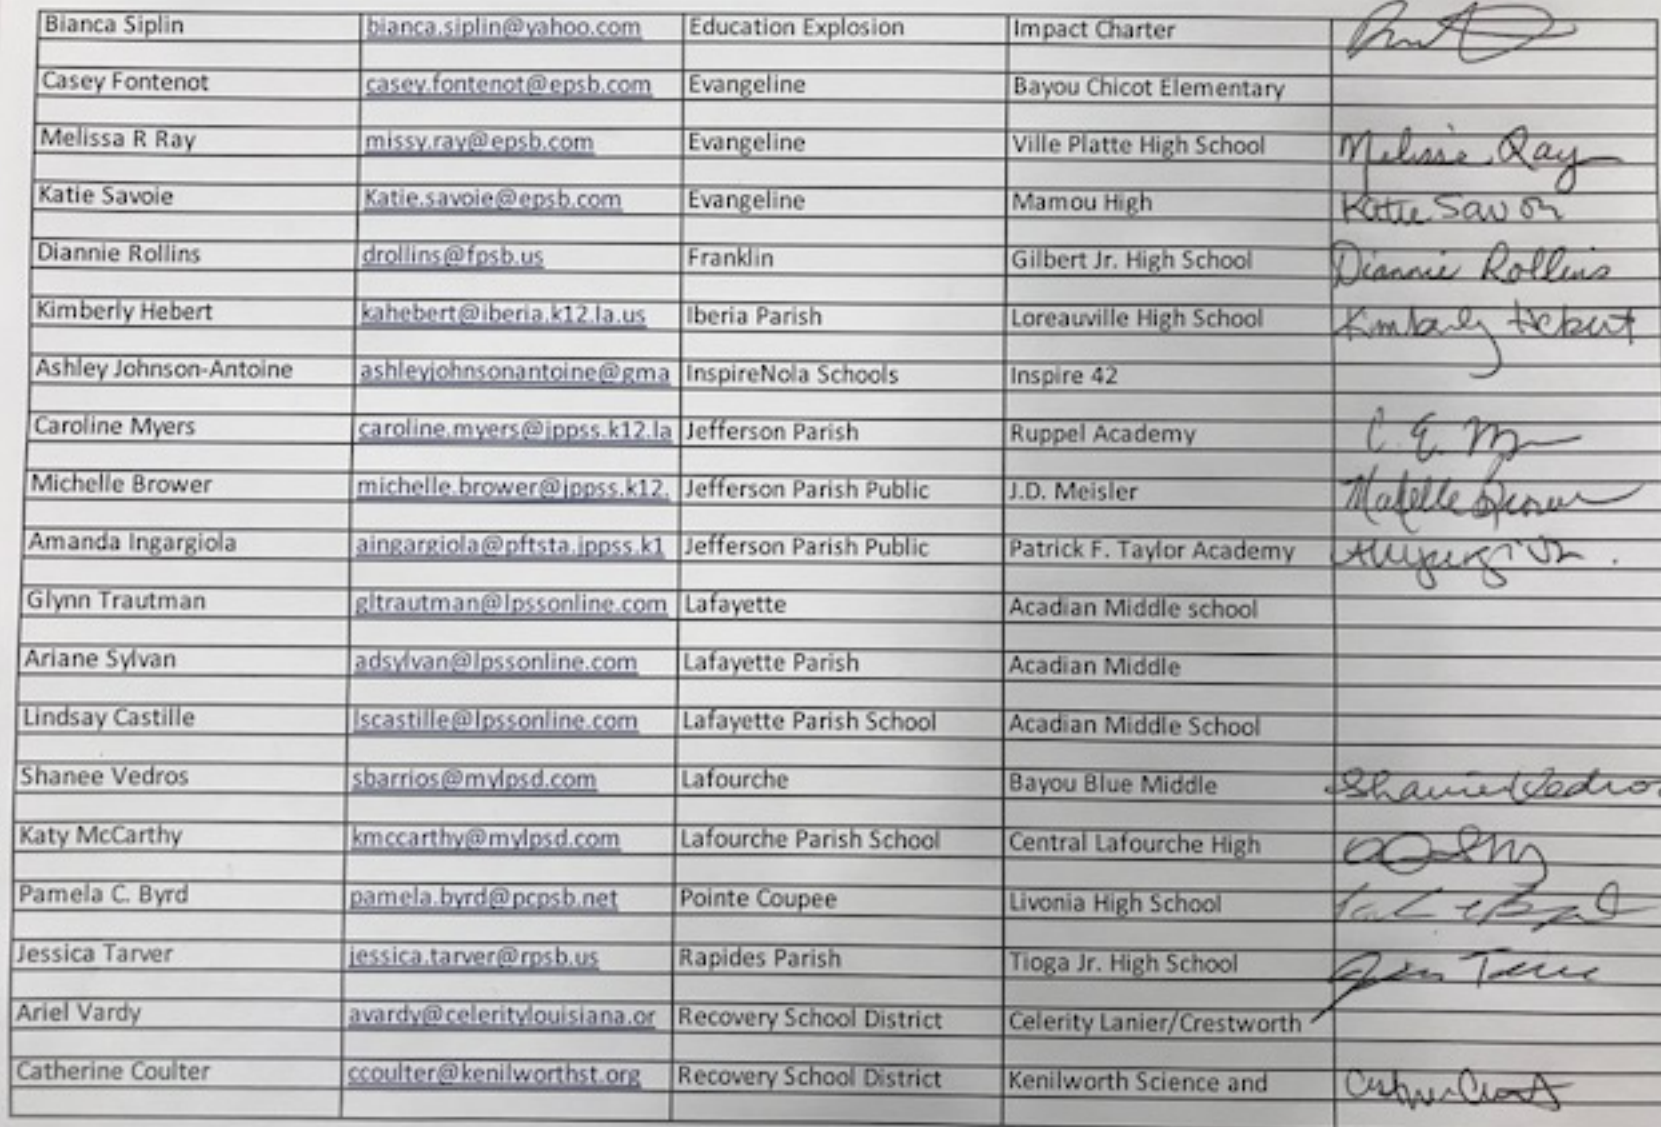 Bianca Siplin bianca.siplin@yahoo.com Education Explosion Impact Charter
Casey Fontenot casey.fontenot@epsb.com Evangeline Bayou Chicot Elementary
Melissa R Ray missy.ray@epsb.com Evangeline Ville Platte High School Melissa Ray
Katie Savoie Katie.savoie@epsb.com Evangeline Mamou High Katie Savoie
Diannie Rollins drollins@fpsb.us Franklin Gilbert Jr. High School Diannie Rollins
Kimberly Hebert kahebert@iberia.k12.la.us Iberia Parish Loreauville High School Kimberly Hebert
Ashley Johnson-Antoine ashleyjohnsonantoine@gma InspireNola Schools Inspire 42
Caroline Myers caroline.myers@jppss.k12.la Jefferson Parish Ruppel Academy
Michelle Brower michelle.brower@jppss.k12. Jefferson Parish Public J.D. Meisler Michelle Brower
Amanda Ingargiola aingargiola@pftsta.jppss.k1 Jefferson Parish Public Patrick F. Taylor Academy
Glynn Trautman gltrautman@lpssonline.com Lafayette Acadian Middle school
Ariane Sylvan adsylvan@lpssonline.com Lafayette Parish Acadian Middle
Lindsay Castille lscastille@lpssonline.com Lafayette Parish School Acadian Middle School
Shanee Vedros sbarrios@mylpsd.com Lafourche Bayou Blue Middle Shanee Vedros
Katy McCarthy kmccarthy@mylpsd.com Lafourche Parish School Central Lafourche High
Pamela C. Byrd pamela.byrd@pcpsb.net Pointe Coupee Livonia High School
Jessica Tarver jessica.tarver@rpsb.us Rapides Parish Tioga Jr. High School
Ariel Vardy avardy@celeritylouisiana.or Recovery School District Celerity Lanier/Crestworth
Catherine Coulter ccoulter@kenilworthst.org Recovery School District Kenilworth Science and